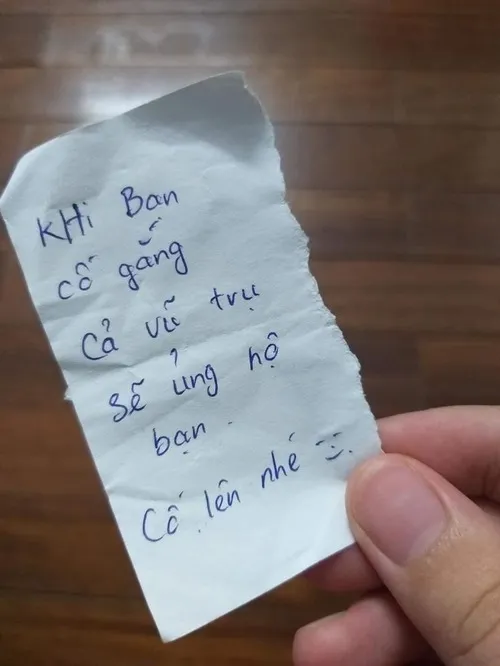 KHi Ban
cố gắng
Cả vũ trụ
sẽ ủng hộ
bạn.
Cố lên nhé :)